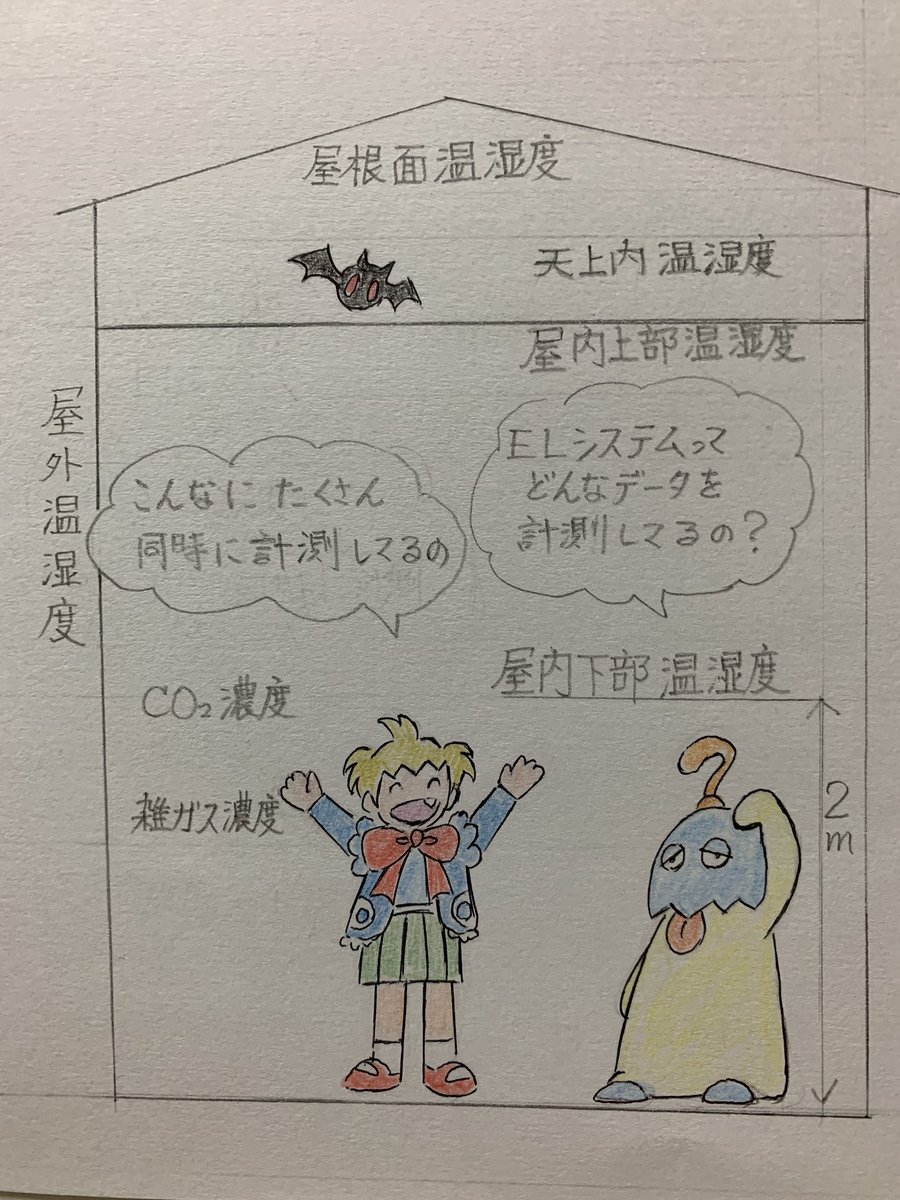 屋根面温湿度
天上内温湿度
屋内上部温湿度
屋外温湿度
ELシステムって
どんなデータを
計測してるの?
こんなにたくさん
同時に計測してるの
屋内下部温湿度
CO₂濃度
雑ガス濃度
2m